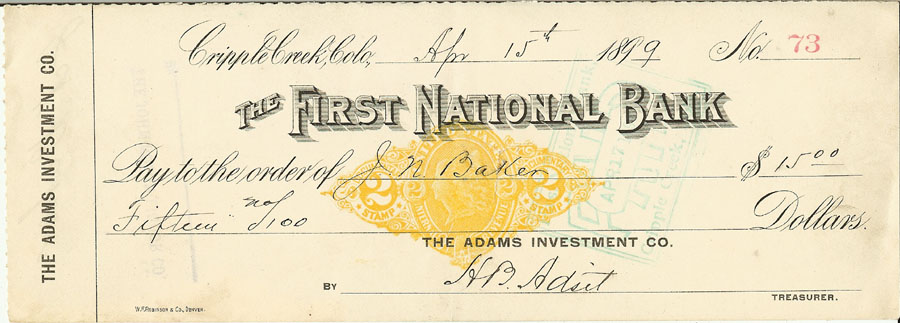 THE ADAMS INVESTMENT CO.
Cripple Creek, Colo, Apr 15th 1899 No. 73
THE FIRST NATIONAL BANK
Pay to the order of J N Baker $ 15.00
Fifteen no/100 Dollars.
2 2 2 2
STAMP STAMP
APR 17
THE ADAMS INVESTMENT CO.
BY H.B. Adsit
TREASURER.
W.F. ROBINSON & CO., DENVER.